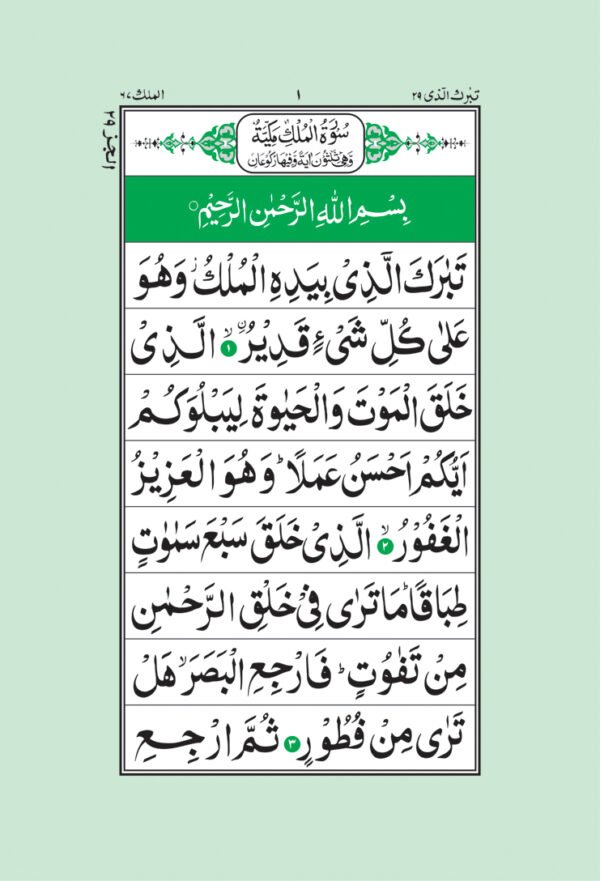 تبٰرك الّذی ۲۹ ۱ الملك ۶۷
الجز ۲۹
سُوْرَةُ الْمُلْكِ مَكِّيَّةٌ
وَّهِىَ ثَلٰثُوْنَ اٰيَةً وَّفِيْهَا رُكُوْعَانِ
بِسْمِ اللّٰهِ الرَّحْمٰنِ الرَّحِيْمِ ○
تَبٰرَكَ الَّذِىْ بِيَدِهِ الْمُلْكُ ؗ وَهُوَ
عَلٰى كُلِّ شَىْءٍ قَدِيْرُ ۨۙ ۱ الَّذِىْ
خَلَقَ الْمَوْتَ وَالْحَيٰوةَ لِيَبْلُوَكُمْ
اَيُّكُمْ اَحْسَنُ عَمَلًا ؕ وَهُوَ الْعَزِيْزُ
الْغَفُوْرُ ۙ ۲ الَّذِىْ خَلَقَ سَبْعَ سَمٰوٰتٍ
طِبَاقًا ؕ مَا تَرٰى فِىْ خَلْقِ الرَّحْمٰنِ
مِنْ تَفٰوُتٍ ؕ فَارْجِعِ الْبَصَرَ ۙ هَلْ
تَرٰى مِنْ فُطُوْرٍ ۳ ثُمَّ ارْجِعِ